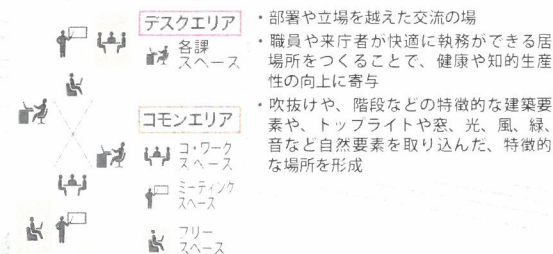 デスクエリア
各課
スペース
コモンエリア
コ・ワーク
スペース
ミーティング
スペース
フリー
スペース
・部署や立場を越えた交流の場
・職員や来庁者が快適に執務ができる居
場所をつくることで、健康や知的生産
性の向上に寄与
・吹抜けや、階段などの特徴的な建築要
素や、トップライトや窓、光、風、緑、
音など自然要素を取り込んだ、特徴的
な場所を形成